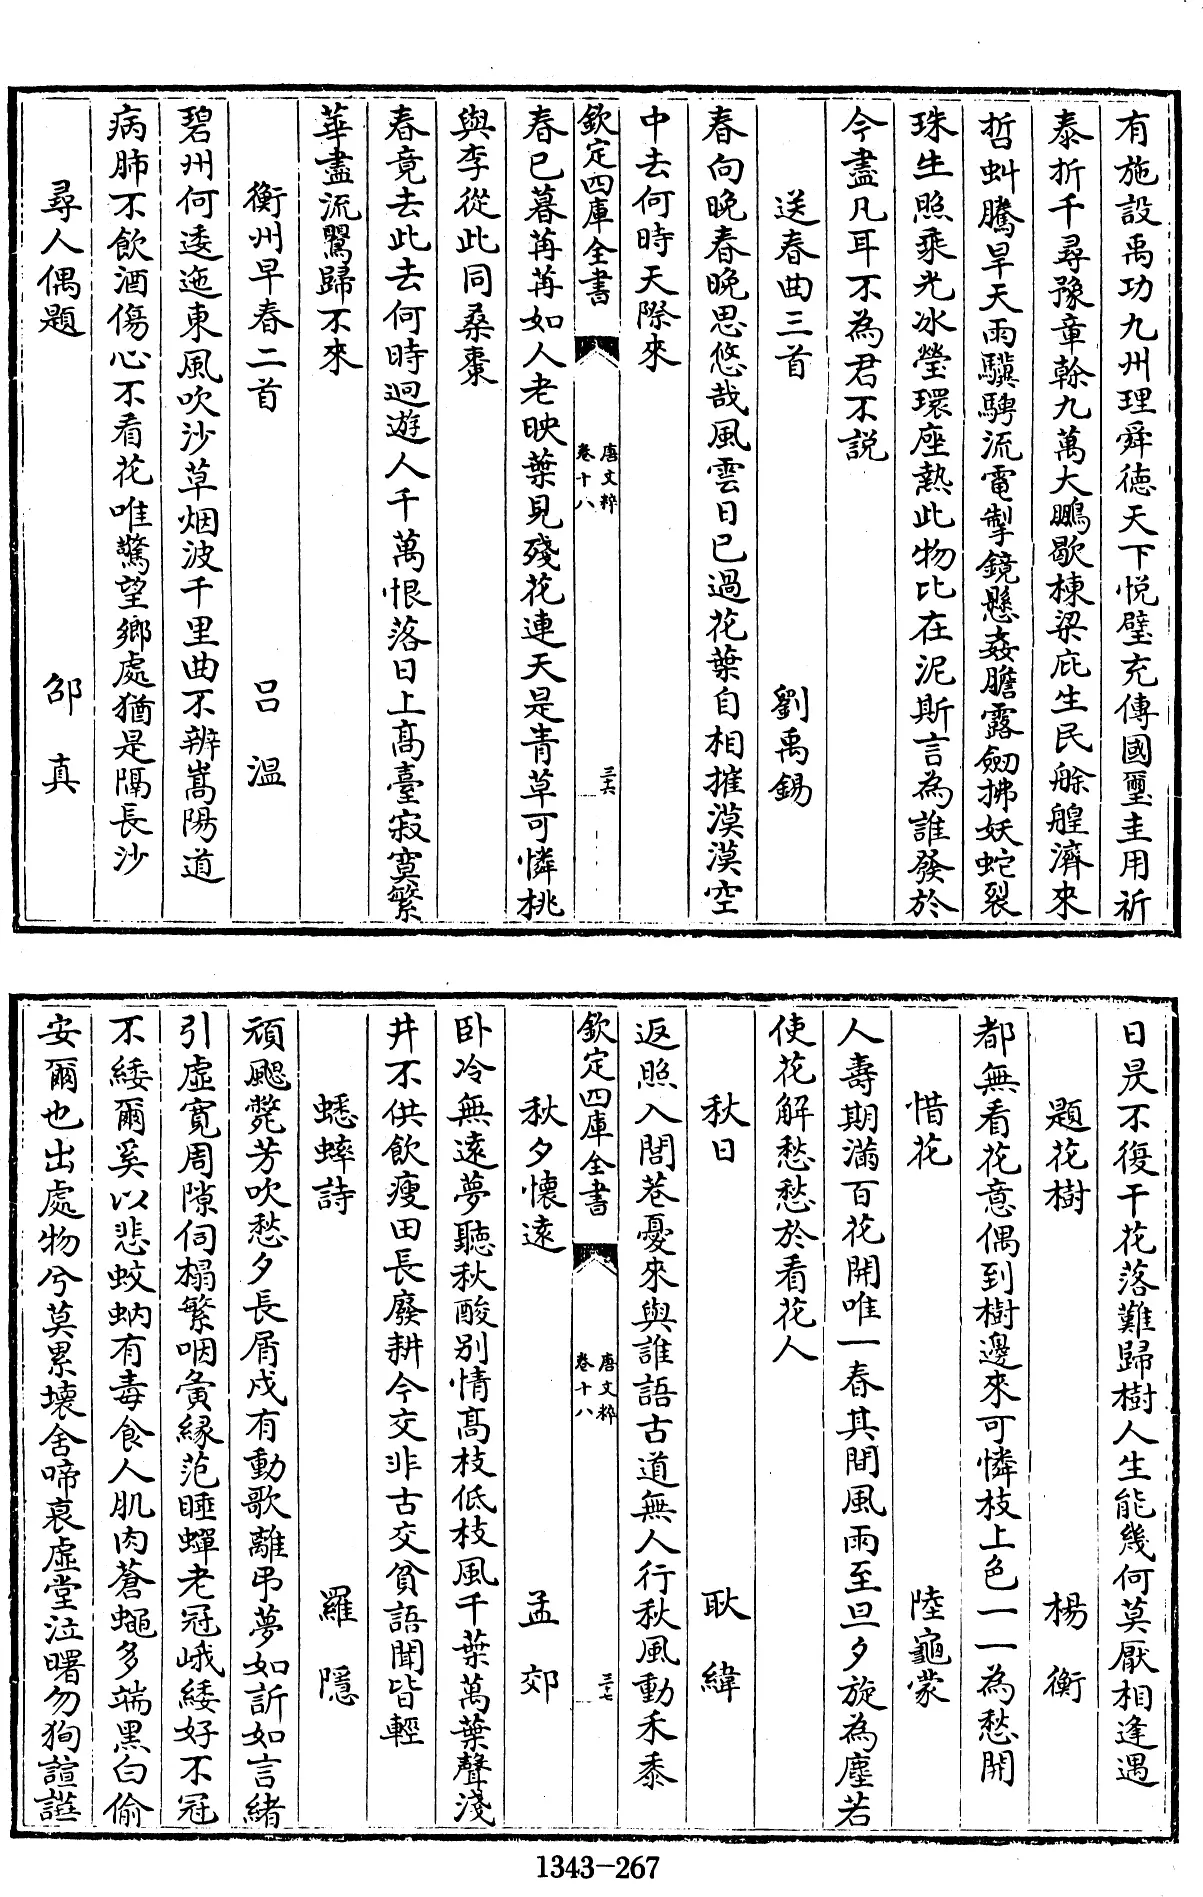 有施設禹功九州理舜德天下悅璧充傳國璽圭用祈
泰折千尋豫章榦九萬大鵬歇棟梁庇生民艅艎濟來
哲虯騰旱天雨驥騁流電掣鏡懸姦膽露劒拂妖蛇裂
珠生照乘光冰瑩環座熱此物比在泥斯言為誰發於
今盡凡耳不為君不説
送春曲三首 劉禹錫
春向晚春晚思悠哉風雲日已過花葉自相摧漠漠空
中去何時天際來
欽定四庫全書 唐文粹 卷十八 三十六
春已暮苒苒如人老映葉見殘花連天是青草可憐桃
與李從此同桑棗
春竟去此去何時迴遊人千萬恨落日上高臺寂寞繁
華盡流鶯歸不來
衡州早春二首 吕温
碧州何逶迤東風吹沙草烟波千里曲不辨嵩陽道
病肺不飲酒傷心不看花唯驚望鄉處猶是隔長沙
尋人偶題 邵真
日昃不復午花落難歸樹人生能幾何莫厭相逢遇
題花樹 楊衡
都無看花意偶到樹邊來可憐枝上色一一為愁開
惜花 陸龜蒙
人壽期滿百花開唯一春其間風雨至旦夕旋為塵若
使花解愁愁於看花人
秋日 耿緯
返照入閭巷憂來與誰語古道無人行秋風動禾黍
欽定四庫全書 唐文粹 卷十八 三十七
秋夕懷遠 孟郊
卧冷無遠夢聽秋酸别情高枝低枝風千葉萬葉聲淺
井不供飲瘦田長廢耕今交非古交貧語聞皆輕
蟋蟀詩 羅隱
頑颸斃芳吹愁夕長屑戍有動歌離弔夢如訴如言緒
引虛寬周隙伺榻繁咽夤緣范睡蟬老冠峨緌好不冠
不緌爾奚以悲蚊蚋有毒食人肌肉蒼蠅多端黑白偷
安爾也出處物兮莫累壊舍啼衰虛堂泣曙勿狥諠譁
1343-267